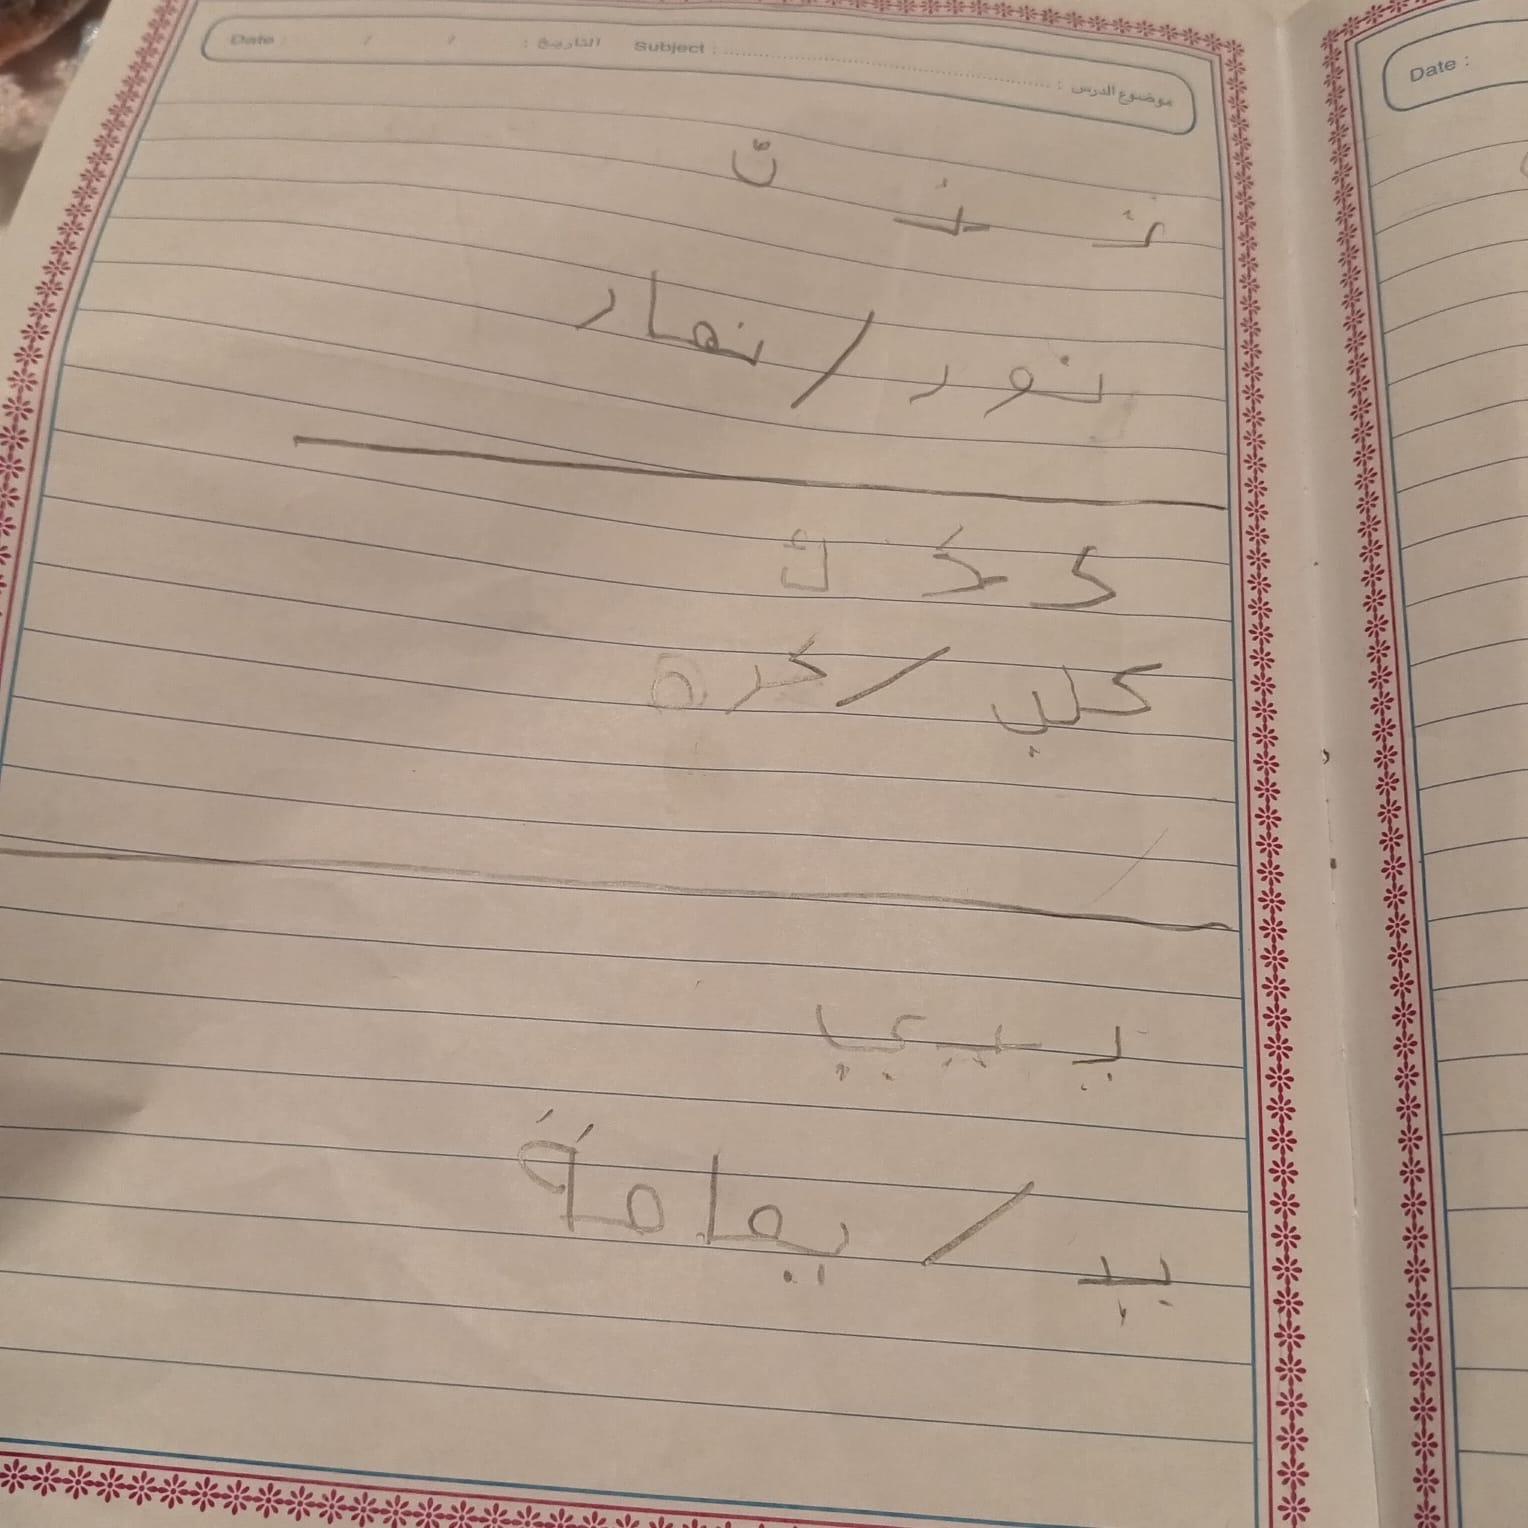 Date : / / التاريخ : Subject : موضوع الدرس :
نـ ـنـ ن
نور / نهار
كـ ـكـ ك
كلب / كره
يـ ـيـ ي
يد / يمامة
Date :